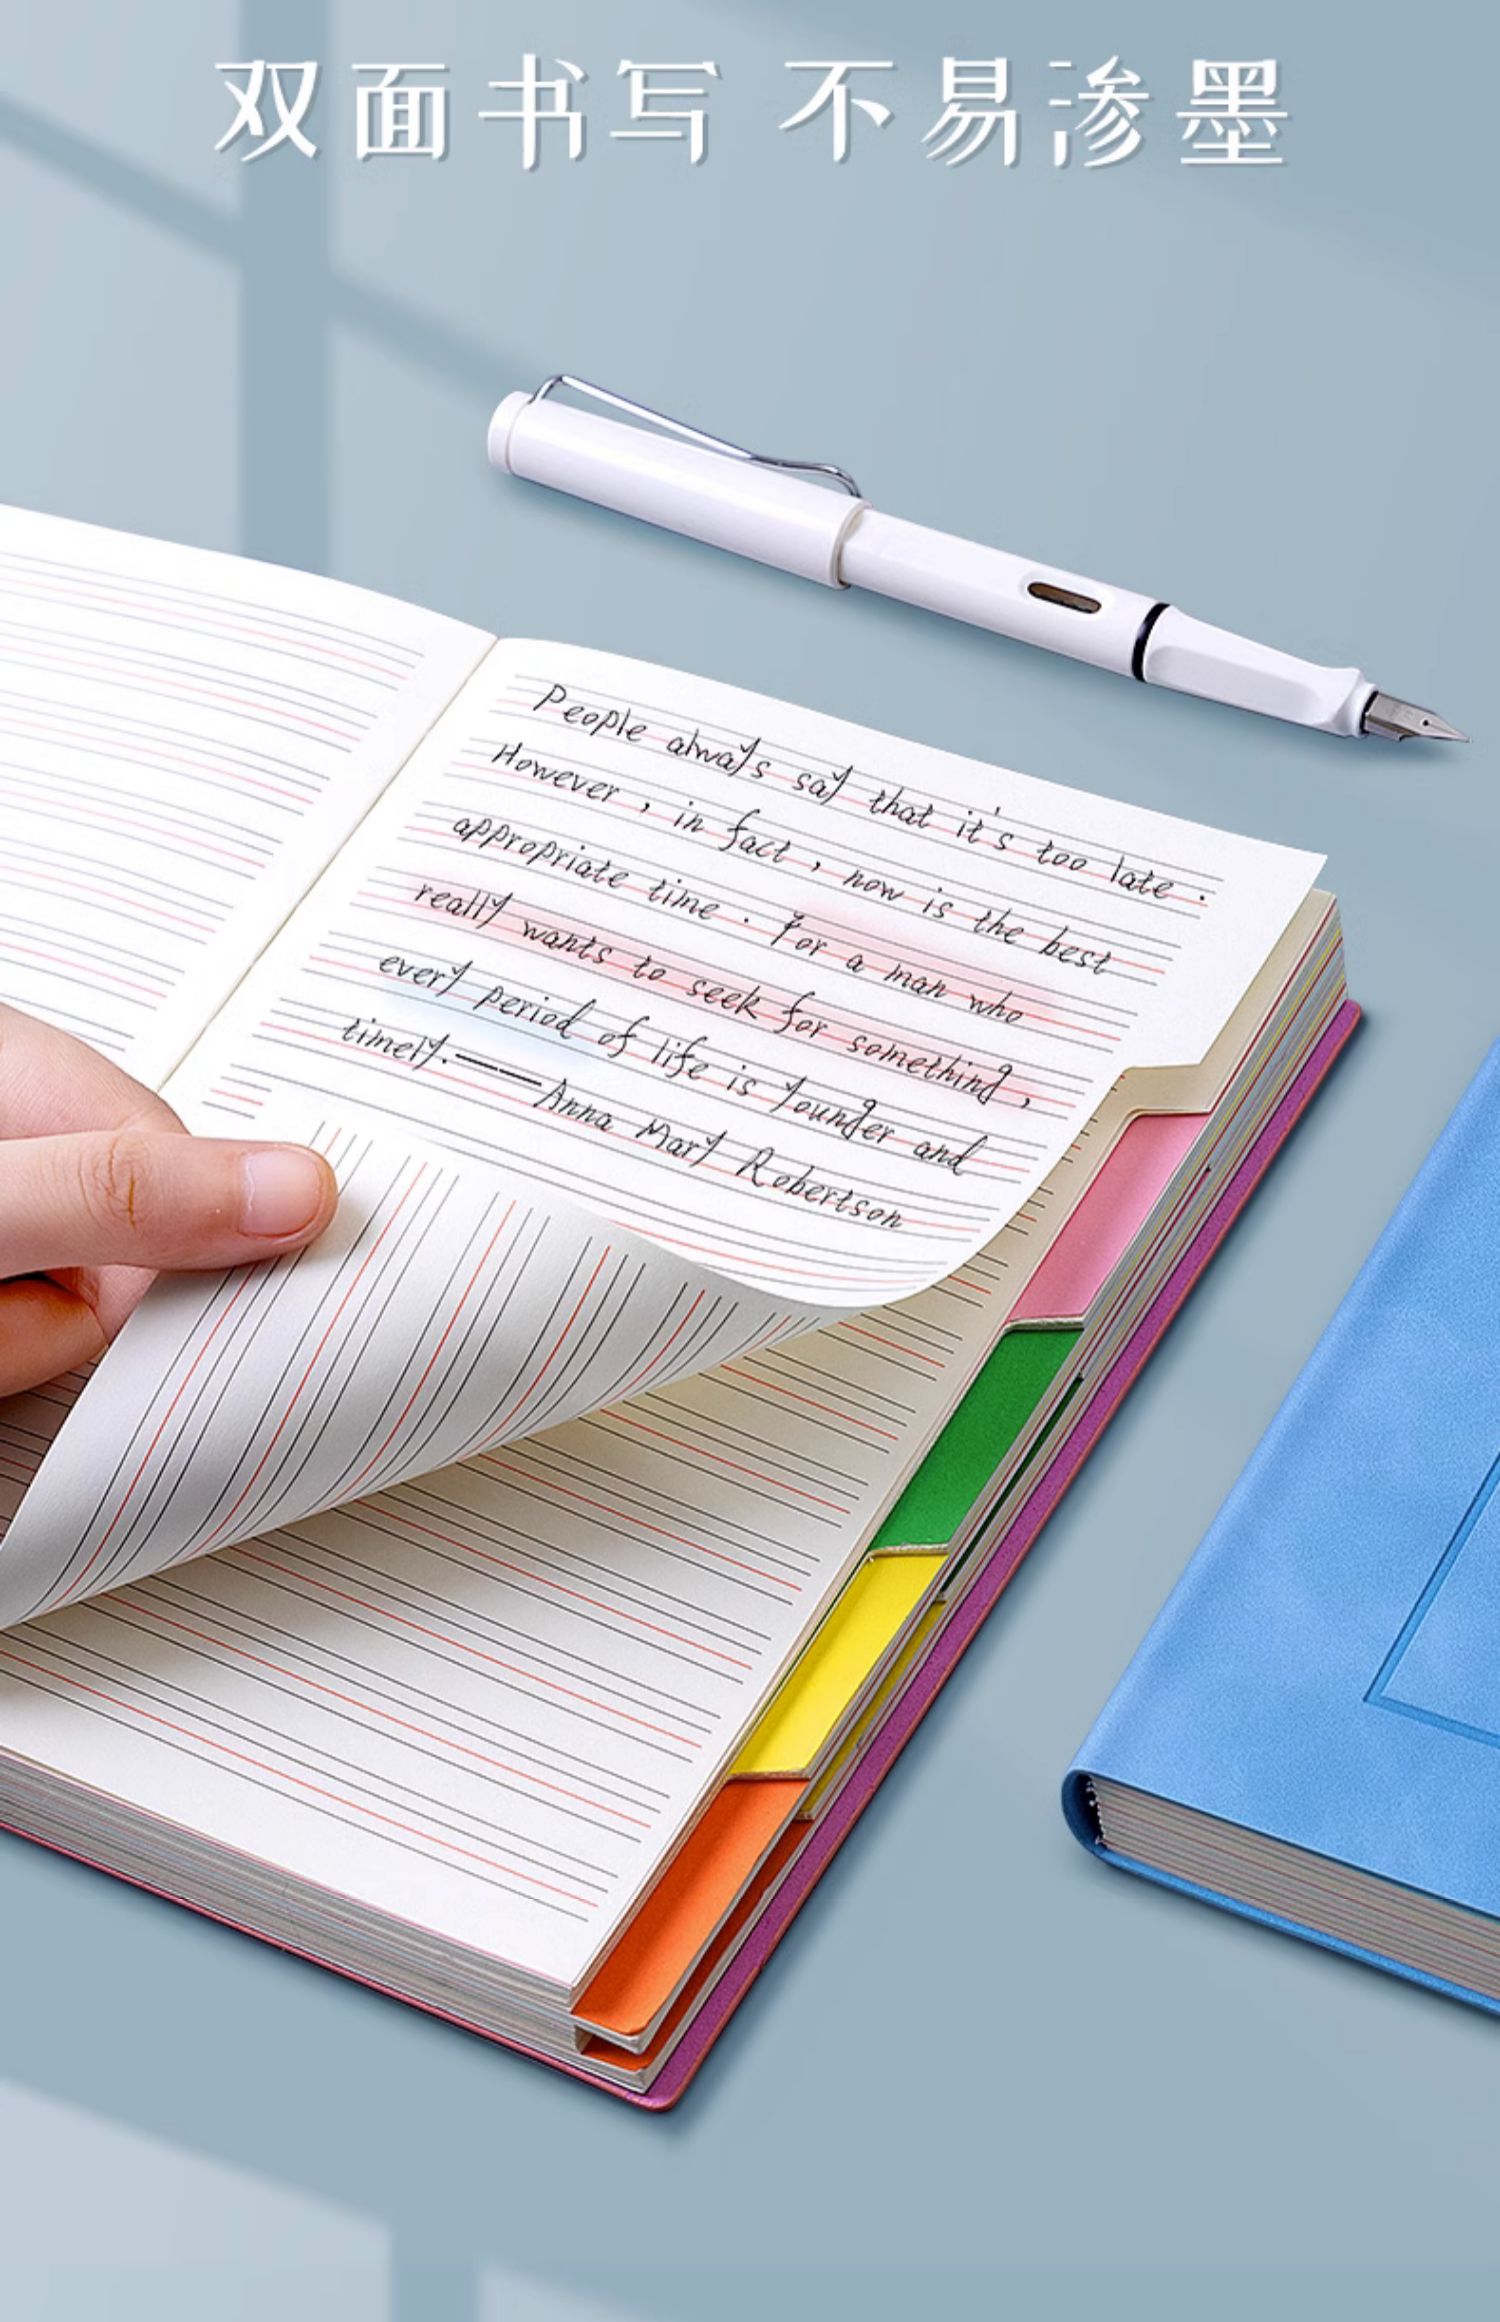 双面书写 不易渗墨
People always say that it's too late.
However, in fact, now is the best
appropriate time. For a man who
really wants to seek for something,
every period of life is younger and
timely.——Anna Mary Robertson